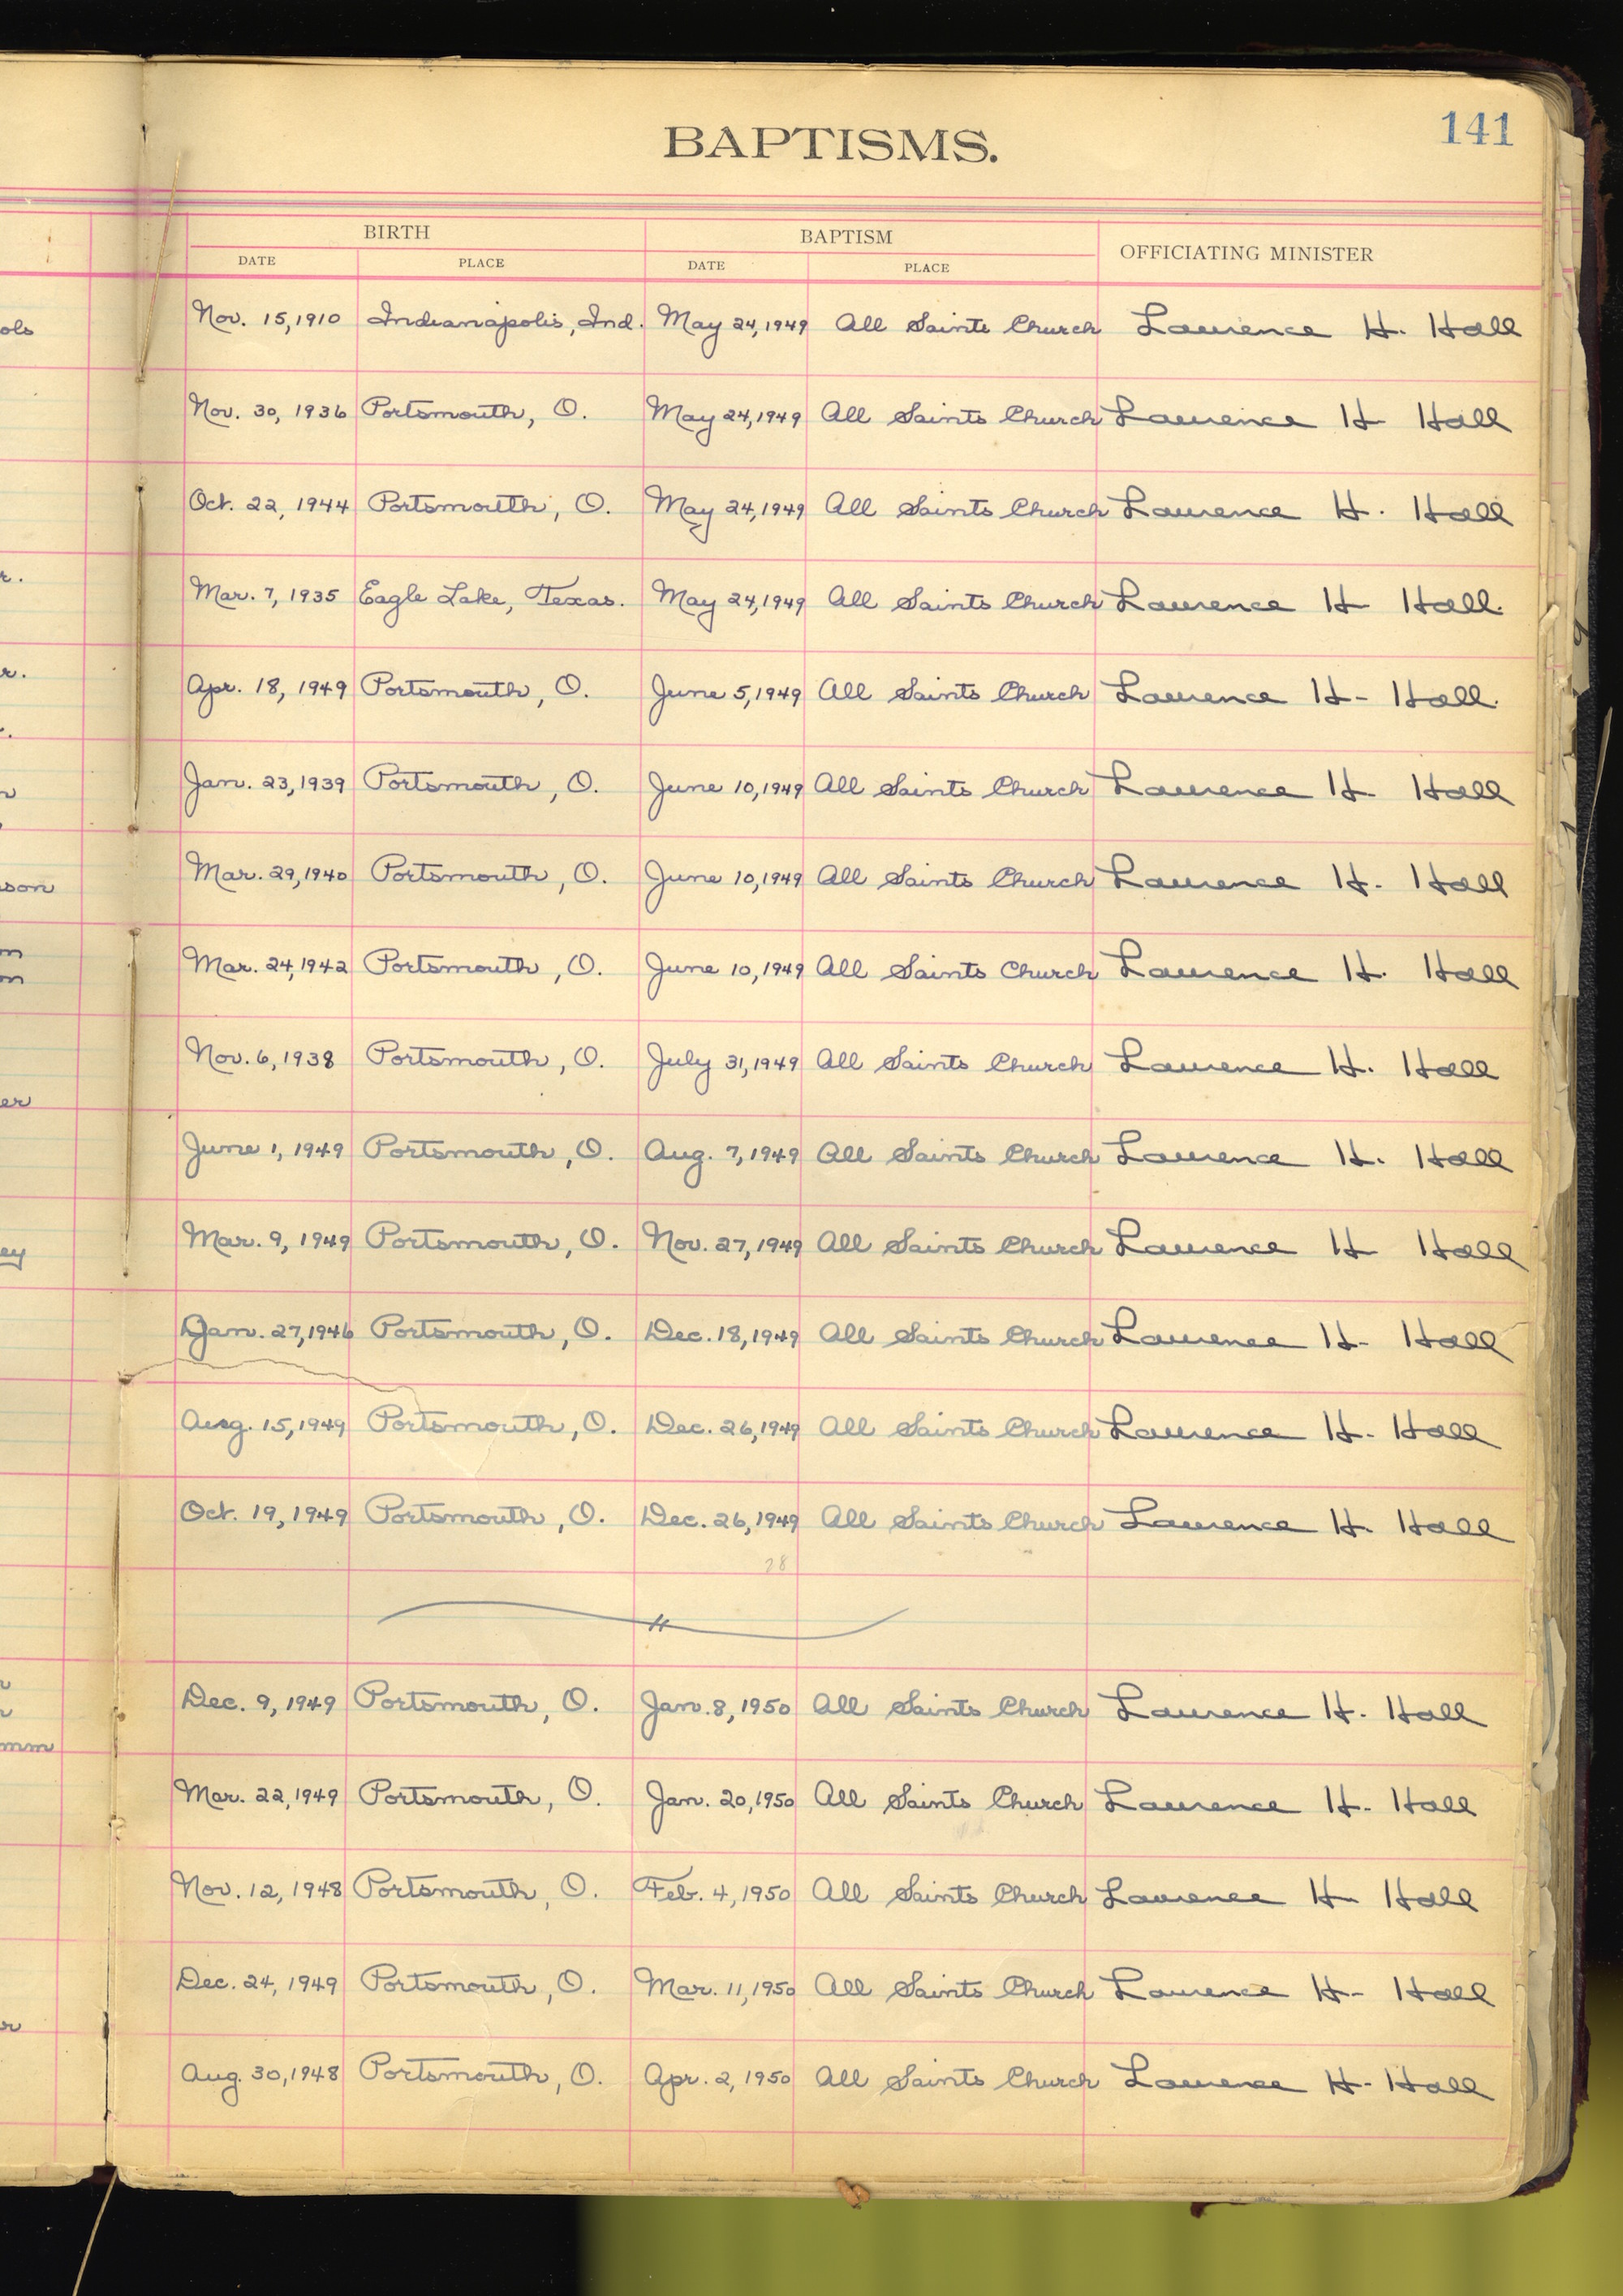 BAPTISMS.
141
BIRTH BAPTISM OFFICIATING MINISTER
DATE PLACE DATE PLACE
Nov. 15, 1910 Indianapolis, Ind. May 24, 1949 All Saints Church Laurence H. Hall
ols
Nov. 30, 1936 Portsmouth, O. May 24, 1949 All Saints Church Laurence H Hall
Oct. 22, 1944 Portsmouth, O. May 24, 1949 All Saints Church Laurence H. Hall
r. Mar. 7, 1935 Eagle Lake, Texas. May 24, 1949 All Saints Church Laurence H Hall.
r. Apr. 18, 1949 Portsmouth, O. June 5, 1949 All Saints Church Laurence H- Hall.
Jan. 23, 1939 Portsmouth, O. June 10, 1949 All Saints Church Laurence H. Hall
son Mar. 29, 1940 Portsmouth, O. June 10, 1949 All Saints Church Laurence H. Hall
m
m Mar. 24, 1942 Portsmouth, O. June 10, 1949 All Saints Church Laurence H. Hall
Nov. 6, 1938 Portsmouth, O. July 31, 1949 All Saints Church Laurence H. Hall
er
June 1, 1949 Portsmouth, O. Aug. 7, 1949 All Saints Church Laurence H. Hall
ey Mar. 9, 1949 Portsmouth, O. Nov. 27, 1949 All Saints Church Laurence H Hall
Jan. 27, 1946 Portsmouth, O. Dec. 18, 1949 All Saints Church Laurence H- Hall
Aug. 15, 1949 Portsmouth, O. Dec. 26, 1949 All Saints Church Laurence H- Hall
Oct. 19, 1949 Portsmouth, O. Dec. 26, 1949 All Saints Church Laurence H. Hall
28
Dec. 9, 1949 Portsmouth, O. Jan. 8, 1950 All Saints Church Laurence H. Hall
mm
Mar. 22, 1949 Portsmouth, O. Jan. 20, 1950 All Saints Church Laurence H- Hall
Nov. 12, 1948 Portsmouth, O. Feb. 4, 1950 All Saints Church Laurence H Hall
Dec. 24, 1949 Portsmouth, O. Mar. 11, 1950 All Saints Church Laurence H- Hall
r
Aug. 30, 1948 Portsmouth, O. Apr. 2, 1950 All Saints Church Laurence H- Hall